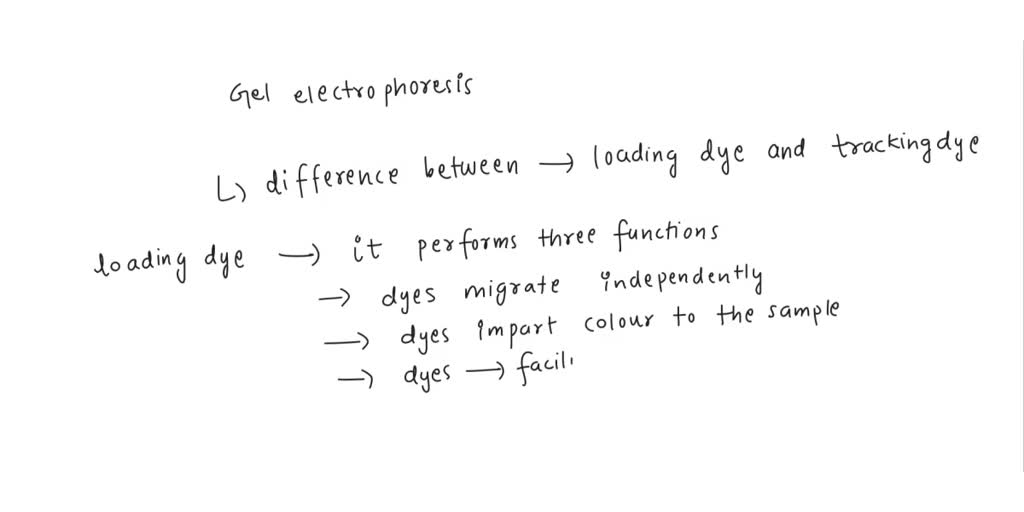 Gel electrophoresis
↳ difference between → loading dye and trackingdye
loading dye → it performs three functions
→ dyes migrate independently
→ dyes impart colour to the sample
→ dyes → facili